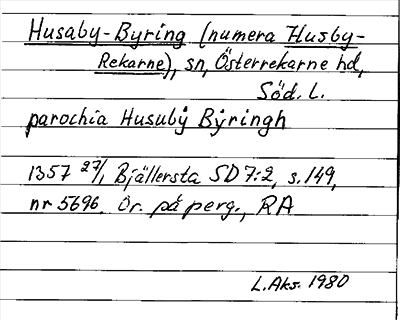 Husaby-Byring (numera Husby-
Rekarne), sn, Österrekarne hd,
Söd. L.
parochia Husubÿ Bÿringh
1357 27/1 Bjällersta SD 7:2, s. 149,
nr 5696. Or. på perg., RA
L. Aks. 1980